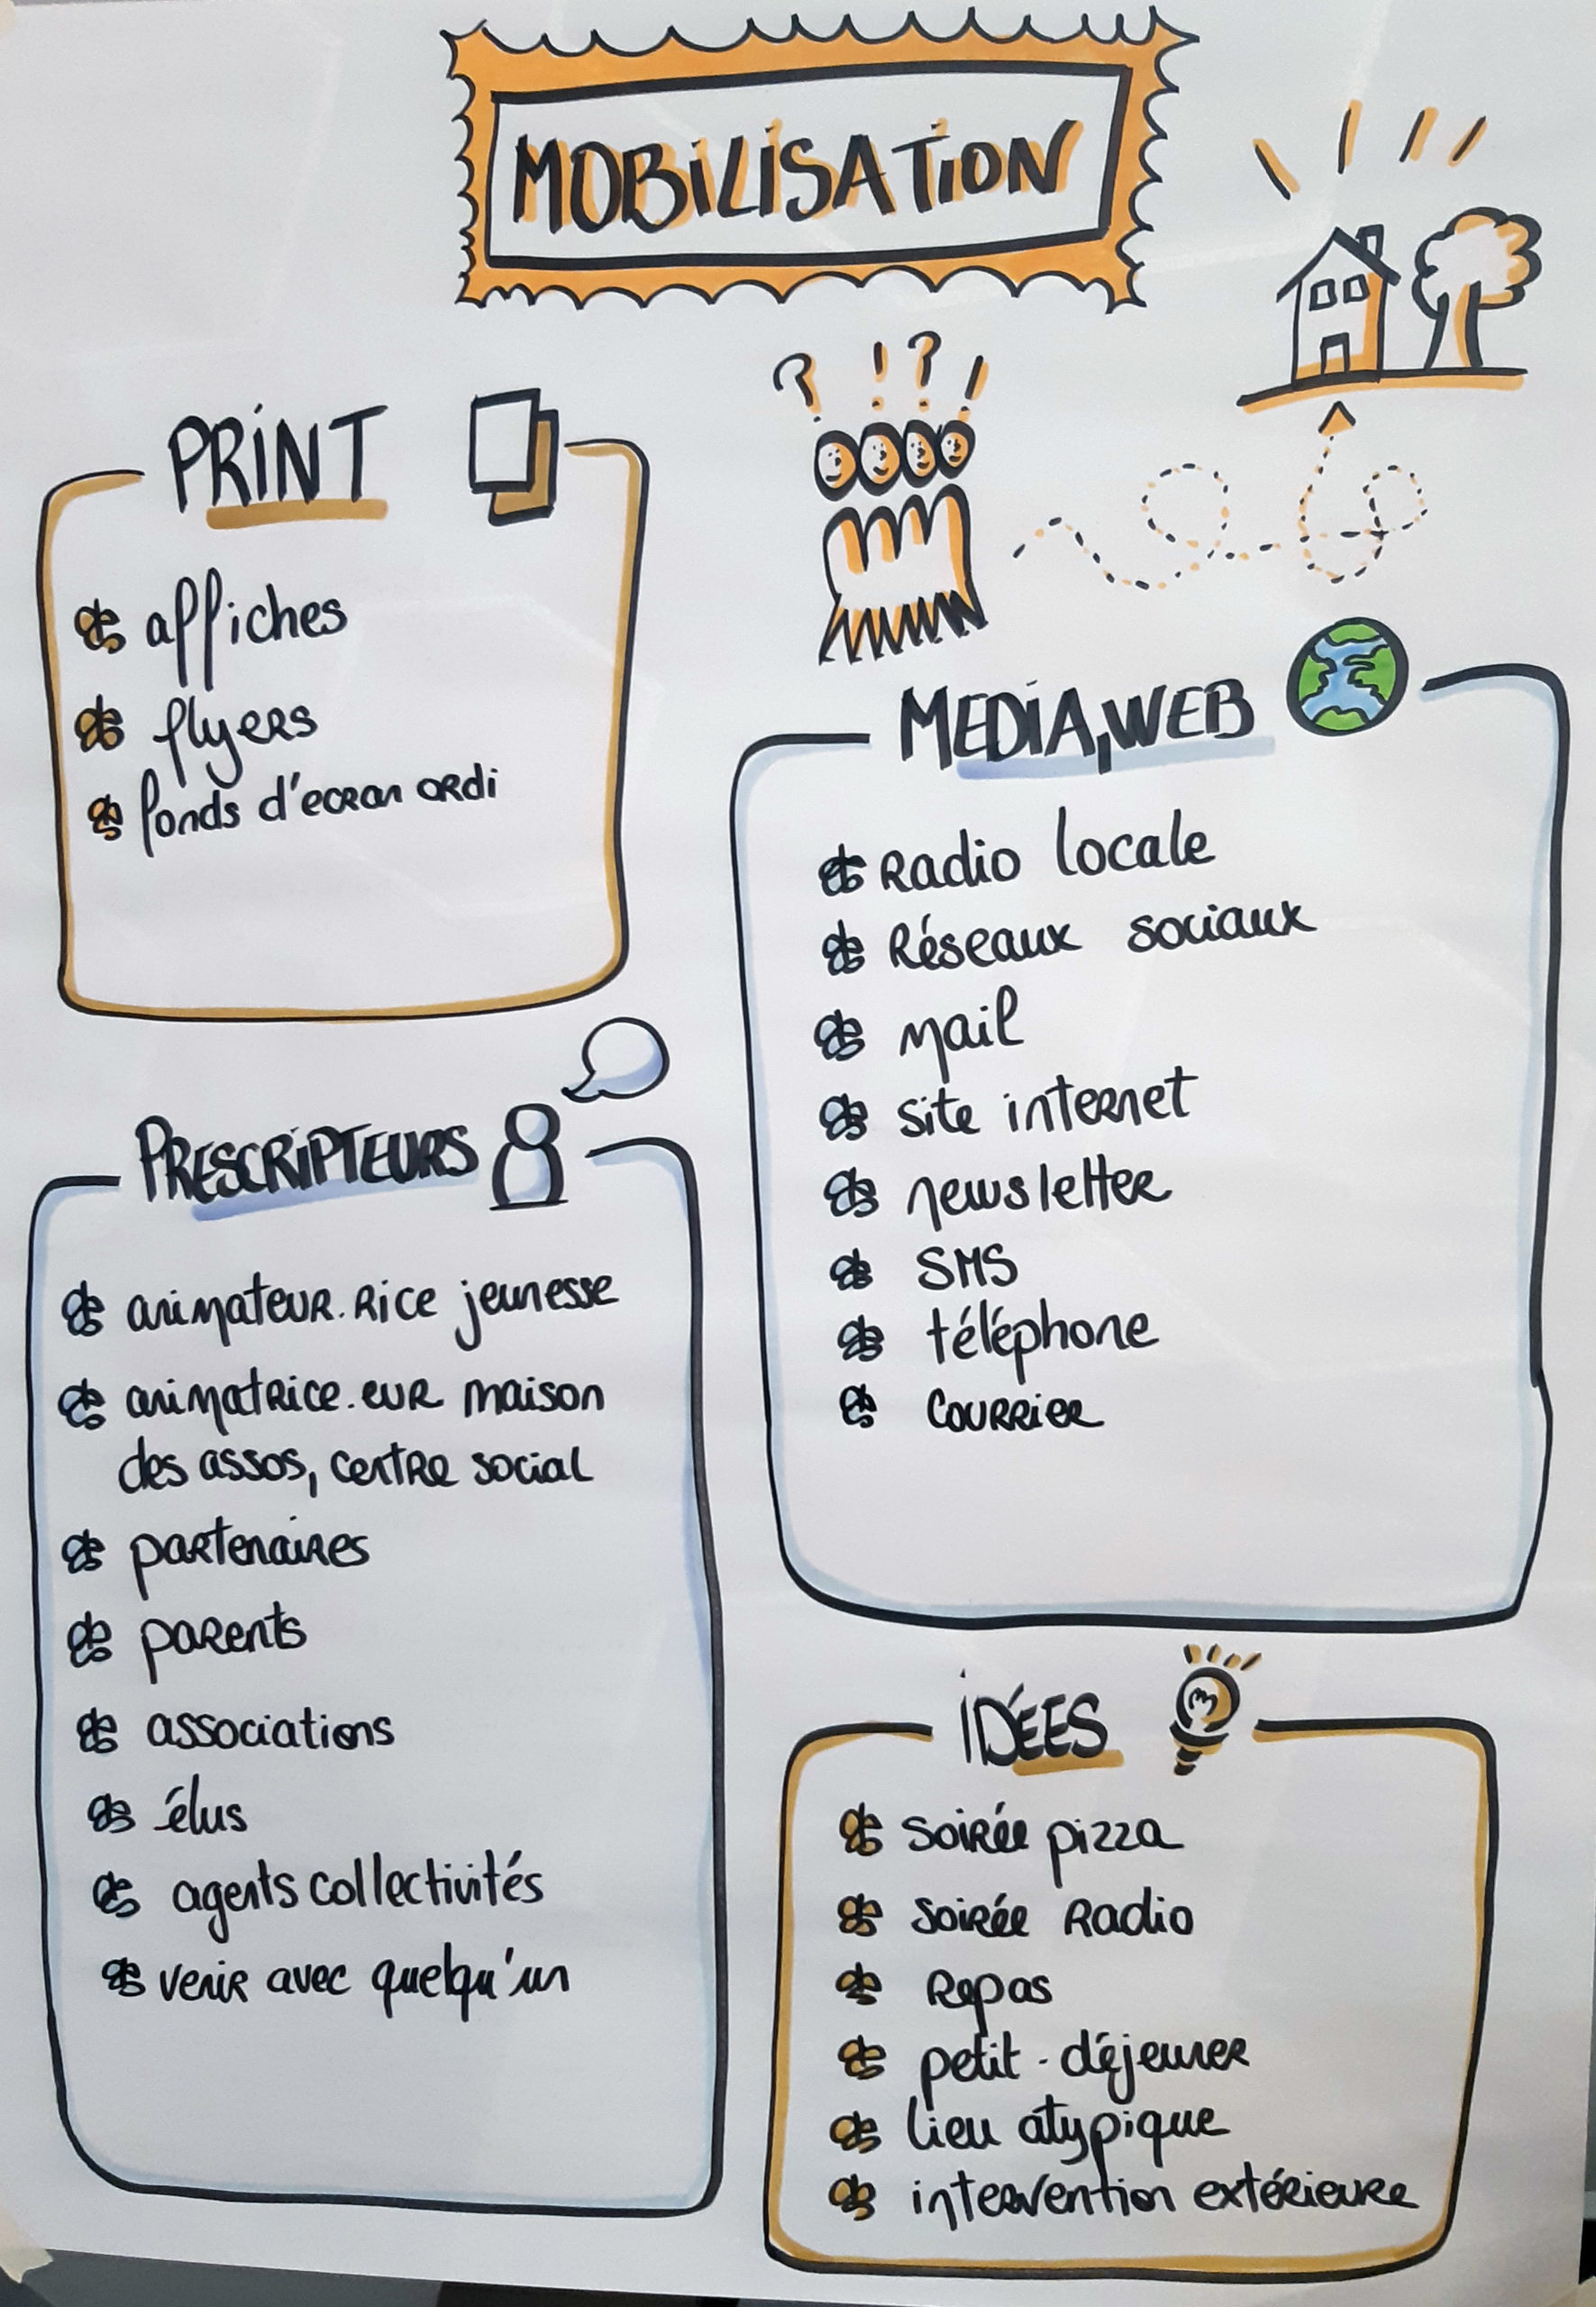 MOBILISATION
? ! ? !
PRINT
affiches
flyers
fonds d'ecran ordi
MEDIA, WEB
Radio locale
Réseaux sociaux
mail
site internet
newsletter
SMS
téléphone
Courrier
PRESCRIPTEURS
animateur.rice jeunesse
animatrice.eur maison
des assos, centre social
partenaires
parents
associations
élus
agents collectivités
venir avec quelqu'un
IDÉES
soirée pizza
soirée Radio
Repas
petit-déjeuner
lieu atypique
intervention extérieure